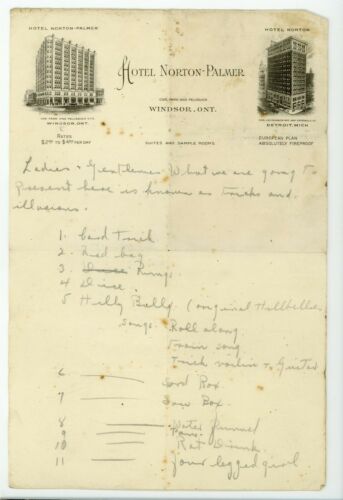 HOTEL NORTON-PALMER
HOTEL NORTON
HOTEL NORTON-PALMER
COR. PARK AND PELISSIER
WINDSOR, ONT.
COR. PARK AND PELISSIER STS.
WINDSOR, ONT.
DETROIT, MICH.
RATES
$2.00 TO $4.00 PER DAY
SUITES AND SAMPLE ROOMS
EUROPEAN PLAN
ABSOLUTELY FIREPROOF
Ladies + Gentlemen What we are going to
present here is known as tricks and
illusions.
1. Card Trick
2. Red bag
3 Rings.
4 Dice.
5 Hilly Billy (original Hillbillies
songs. Roll along
Train song
Trick violin + Guitar
6 Sord Box
7 Saw Box.
8 Water Funnel
9
10 Rat Drink
11 four legged girl